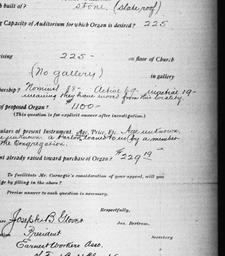 h built of? stone (slate roof)
g Capacity of Auditorium for which Organ is desired? 225
ising 225 - on floor of Church
(No gallery) in gallery
bership? Nominal 88 - Active 69 - inactive 19 -
meaning they have moved from this locality.
of proposed Organ? $1100 -
(This question is for explicit answer after investigation.)
ulars of present Instrument. Age, Price, Etc. Age unknown,
unknown a by a member
the Congregation.
nt already raised toward purchase of Organ? $229 19
To facilitate Mr. Carnegie's appreciation of your appeal, will you
ge by filling in the above?
Precise answer to each question is necessary.
Respectfully,
Jas. Bertram,
Secretary
Joseph B
President
Earnest Workers Asso.